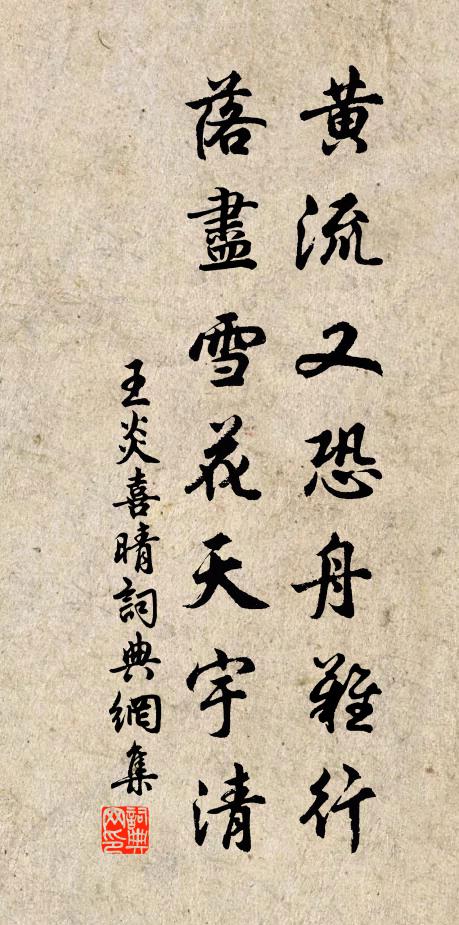 黃流又恐舟難行
落盡雪花天宇清
王炎喜晴詞典網集
詞典网印